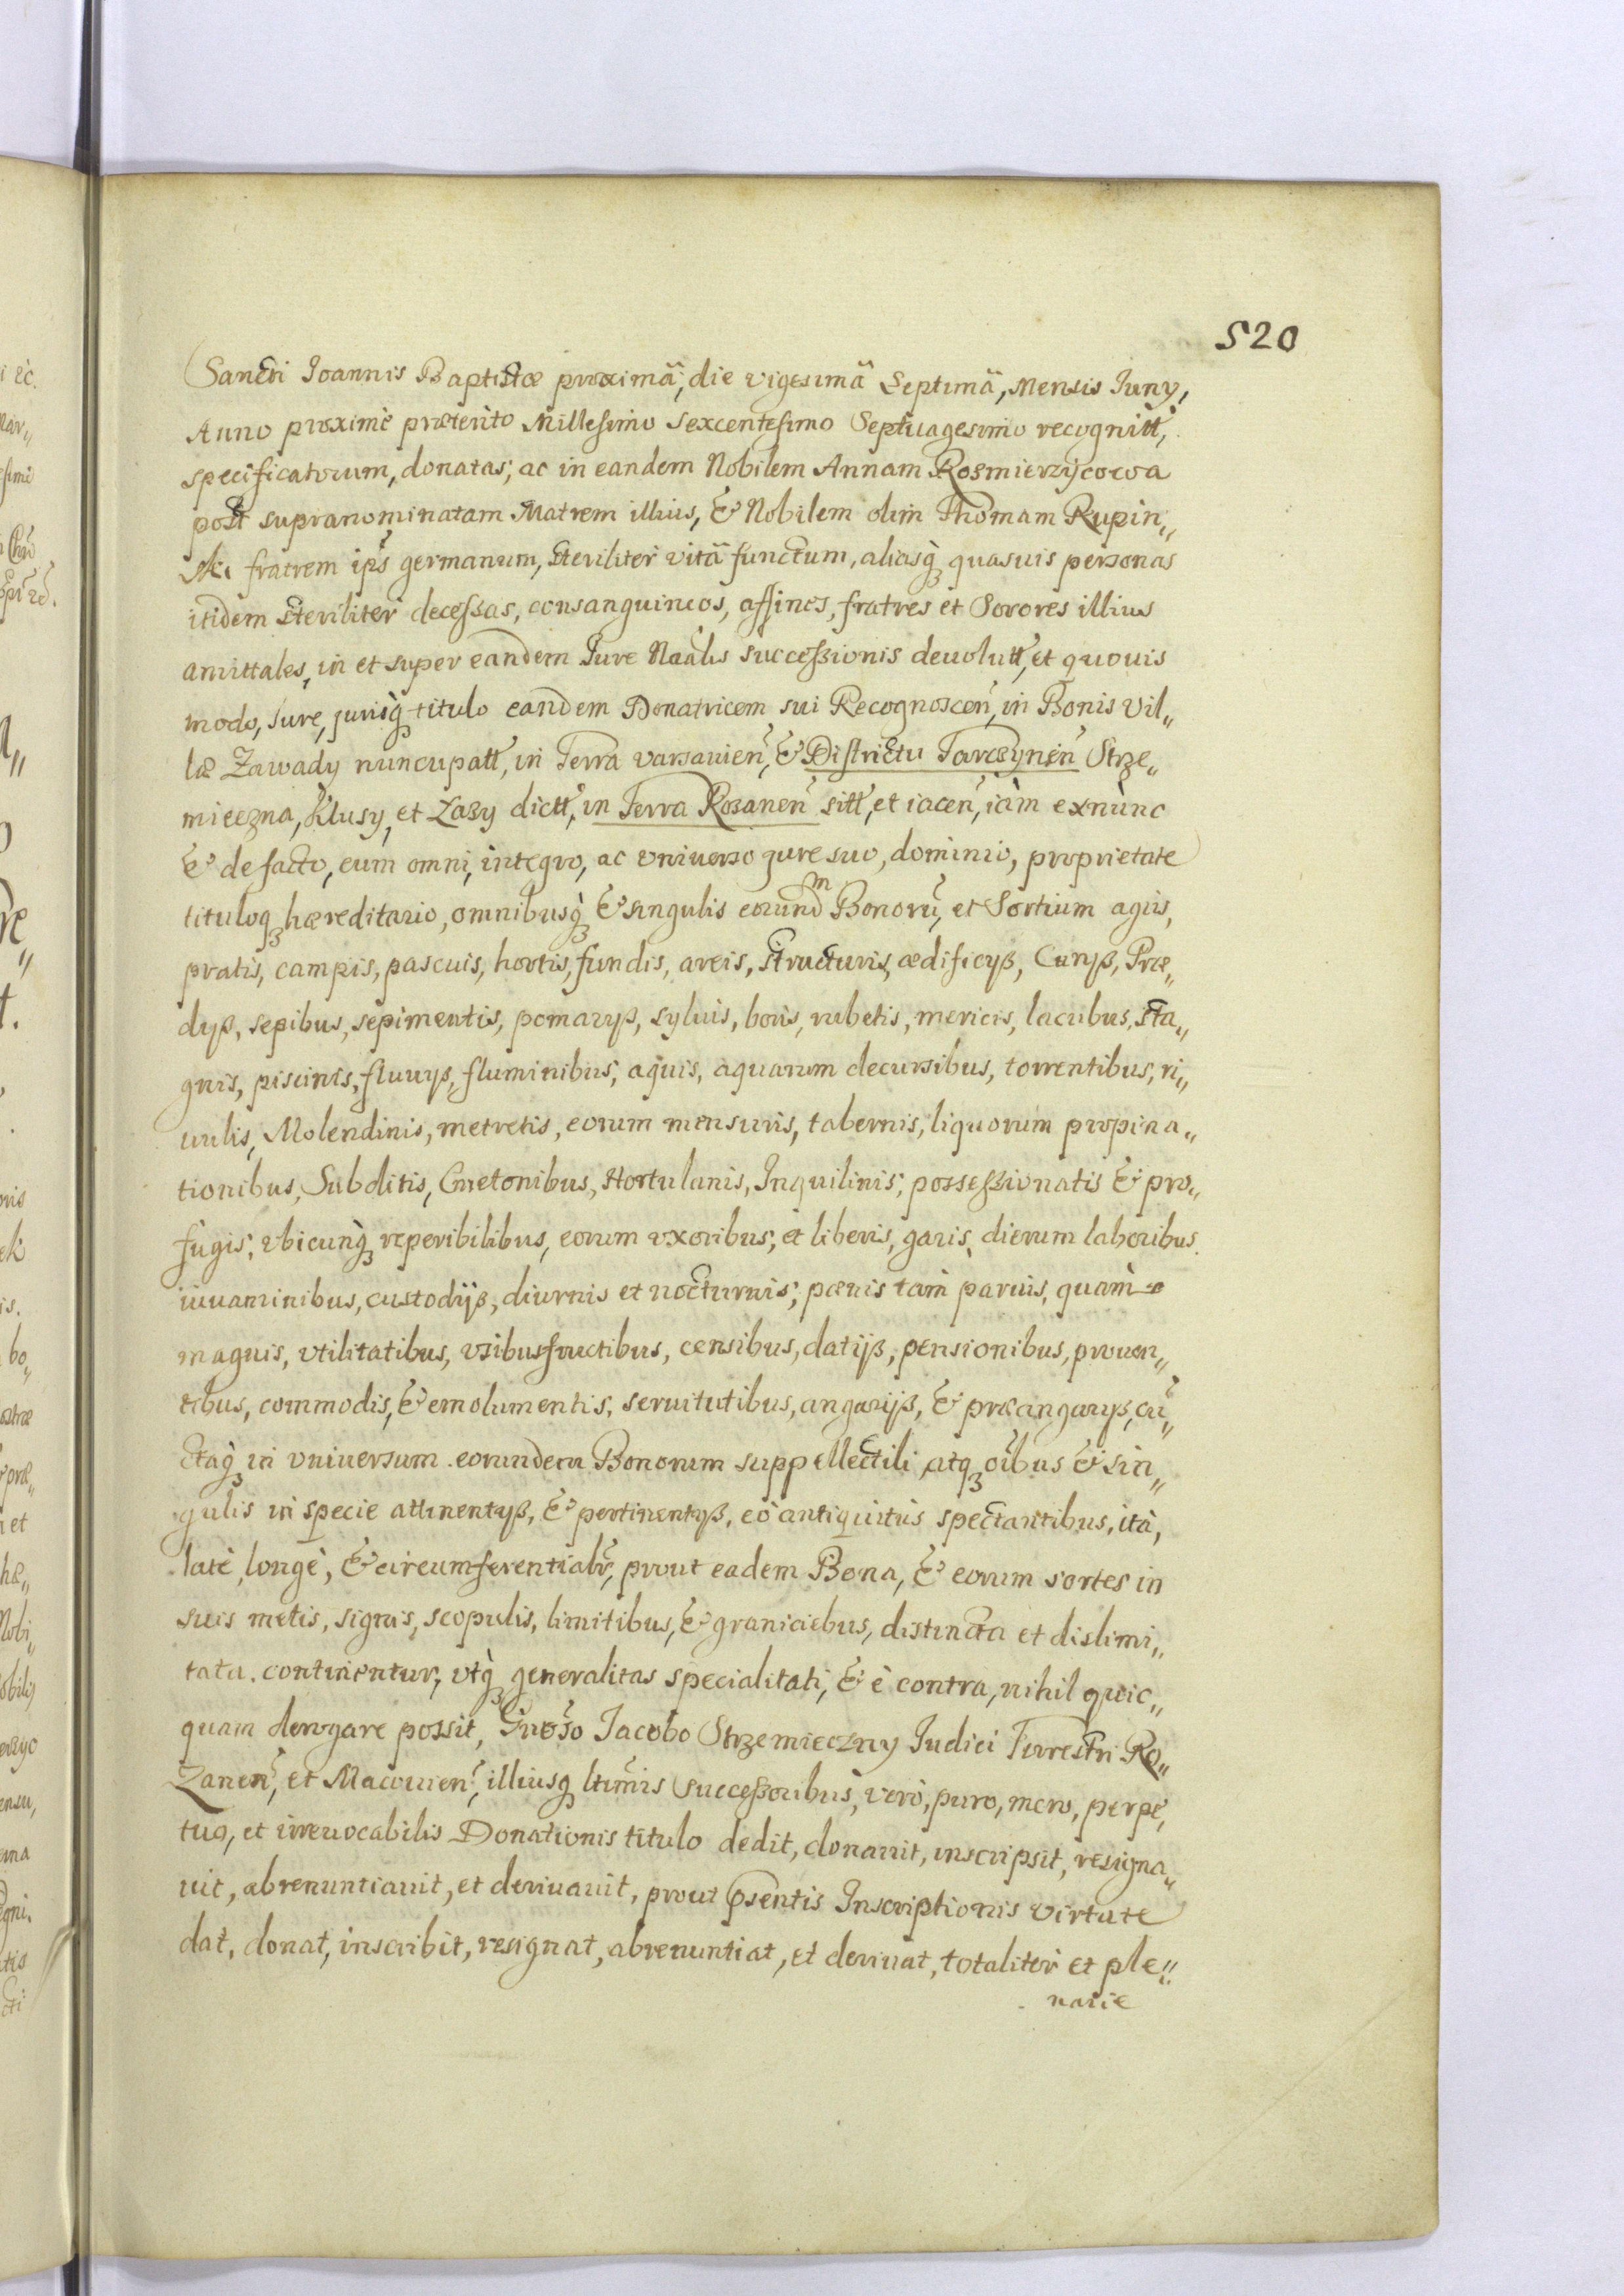 520
Sancti Joannis Baptistæ proximâ, die vigesimâ Septimâ, Mensis Juny,
Anno proximè præterito Millesimo sexcentesimo Septuagesimo recognitt,
specificatorum, donatas, ac in eandem Nobilem Annam Rosmierzycowa
post supranominatam Matrem illius, & Nobilem olim Thomam Rupin„
ski fratrem ips germanum, steriliter vitâ functum, aliasq quasuis personas
itidem steriliter decessas, consanguineos, affines, fratres et Sorores illius
amittales, in et super eandem Jure Naãlis successionis deuolutt, et quouis
modo, Jure, jurisq titulo eandem Donatricem sui Recognoscen, in Bonis Vil„
læ Zawady nuncupatt, in Terra varsauien, & Districtu Tarczynen Strze„
mieczna, Klusy, et Zazy dictt, in Terra Rosanen sitt, et iacen, iàm exnùnc
& defacto, cum omni, integro, ac vniuerso jure suo, dominio, proprietate
tituloq hæreditario, omnibusq & singulis eorundm Bonorũ, et Sortium agris,
pratis, campis, pascuis, hortis, fundis, areis, structuris, ædificyß, Curyß, Præ„
dyß, sepibus, sepimentis, pomaryß, syluis, boris, rubetis, mericis, lacubus, sta„
gnis, piscinis, fluuyß, fluminibus, aquis, aquarum decursibus, torrentibus, ri„
uulis, Molendinis, metretis, eorum mensuris, tabernis, liquorum propina„
tionibus, Subditis, Cmetonibus, Hortulanis, Inquilinis, possessionatis & pro„
fugis, vbicunq reperibilibus, eorum vxoribus, et liberis, garis, dierum laboribus
iuuaminibus, custodijß, diurnis et nocturnis, pænis tàm paruis, quàm
magnis, vtilitatibus, vsibusfructibus, censibus, datijß, pensionibus, prouen„
tibus, commodis, & emolumentis, seruitutibus, angarijß, & præangaryß, cũ„
ctaq in vniuersum eorundem Bonorum suppellectili atq oibus & sin„
gulis in specie attinentyß, & pertinentyß, eò antiquitùs spectantibus, ità,
latè, longè, & circumferentialr, prout eadem Bona, & eorum sortes in
suis metis, signis, scopulis, limitibus, & graniciebus, distincta et dislimi„
tata continentur, vtq generalitas specialitati, & è contra, nihil quic„
quam derogare possit, Gnoso Jacobo Strzemieczny Judici Terrestri Ro„
Zanen, et Macouien, illiusq ltimis Successoribus, verò, puro, mero, perpe„
tuo, et irreuocabilis Donationis titulo dedit, donauit, inscripsit, resigna„
uit, abrenuntiauit, et deriuauit, prout psentis Inscriptionis virtute
dat, donat, inscribit, resignat, abrenuntiat, et deriuat, totaliter et ple„
narie